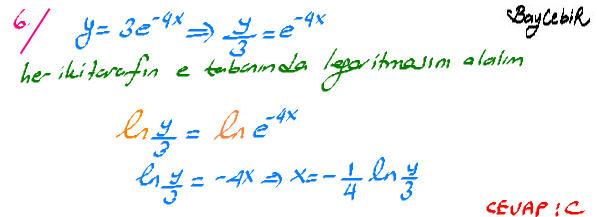 6/ y = 3e^{-4x} ⇒ y/3 = e^{-4x} BayCebiR
her iki tarafın e tabanında logaritmasını alalım
ln y/3 = ln e^{-4x}
ln y/3 = -4x ⇒ x = -1/4 ln y/3
CEVAP : C